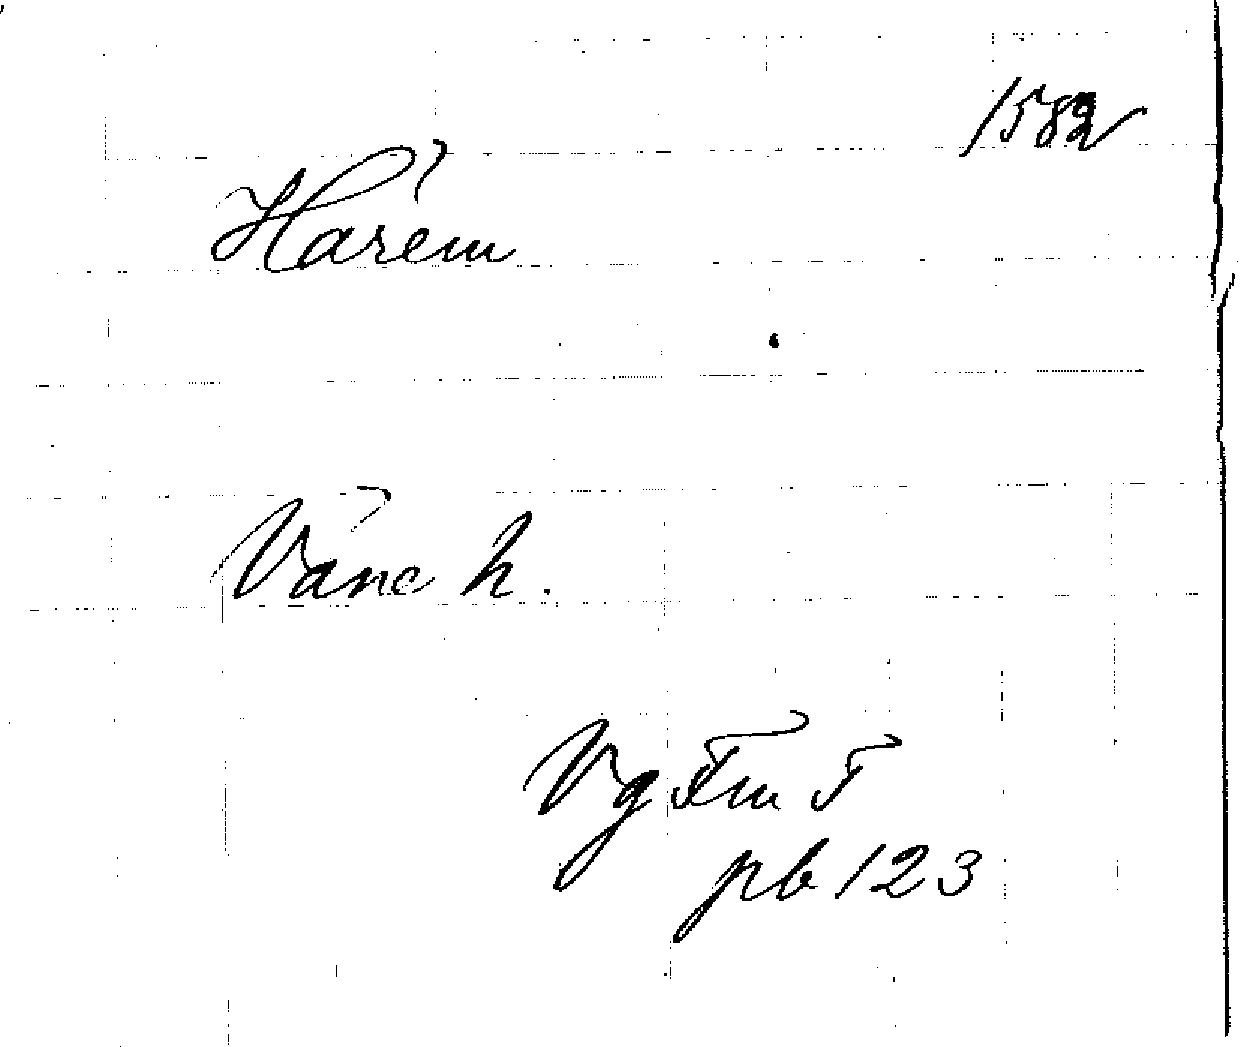 1582
Harem
Väne h.
Vg Fm F
pb 123